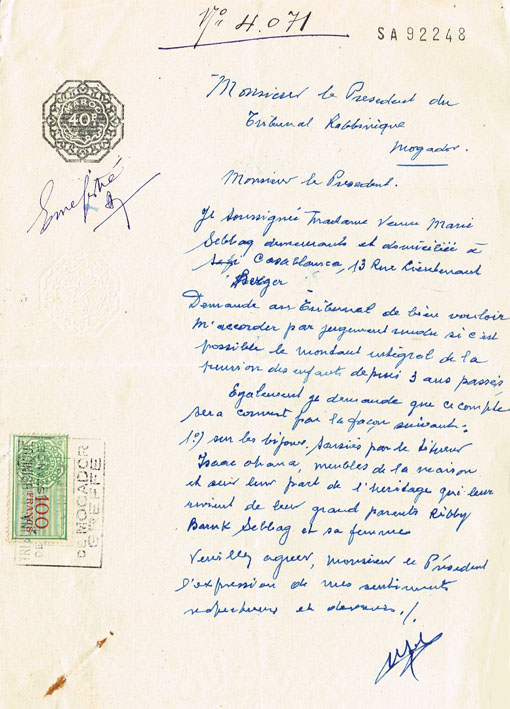 N° 4.071
SA 92248
MAROC
40 F
Monsieur le President du
Tribunal Rabbinique
Mogador.
Enregistré
Monsieur le President.
Je soussignée Madame Veuve Marie
Sebbag demeurants et domiciliée à
Safi Casablanca, 13 Rue Lieutenant
Berger
Demande au Tribunal de bien vouloir
m'accorder par jugement rendu si c'est
possible le montant intégral de la
pension des enfants depuis 3 ans passés
Egalement je demande que ce compte
sera couvert par la façon suivante:
1°) sur les bijoux saisies par le
Isaac ohana, meubles de la maison
et sur leur part de l'heritage qui leur
revient de leur grand parents Ribby
Baruk Sebbag et sa femmes
Veuillez agreer, monsieur le Président
l'expression de mes sentiments
respectueux et devoués ./.
100
FRANCS
DE MOGADOR
GREFFE